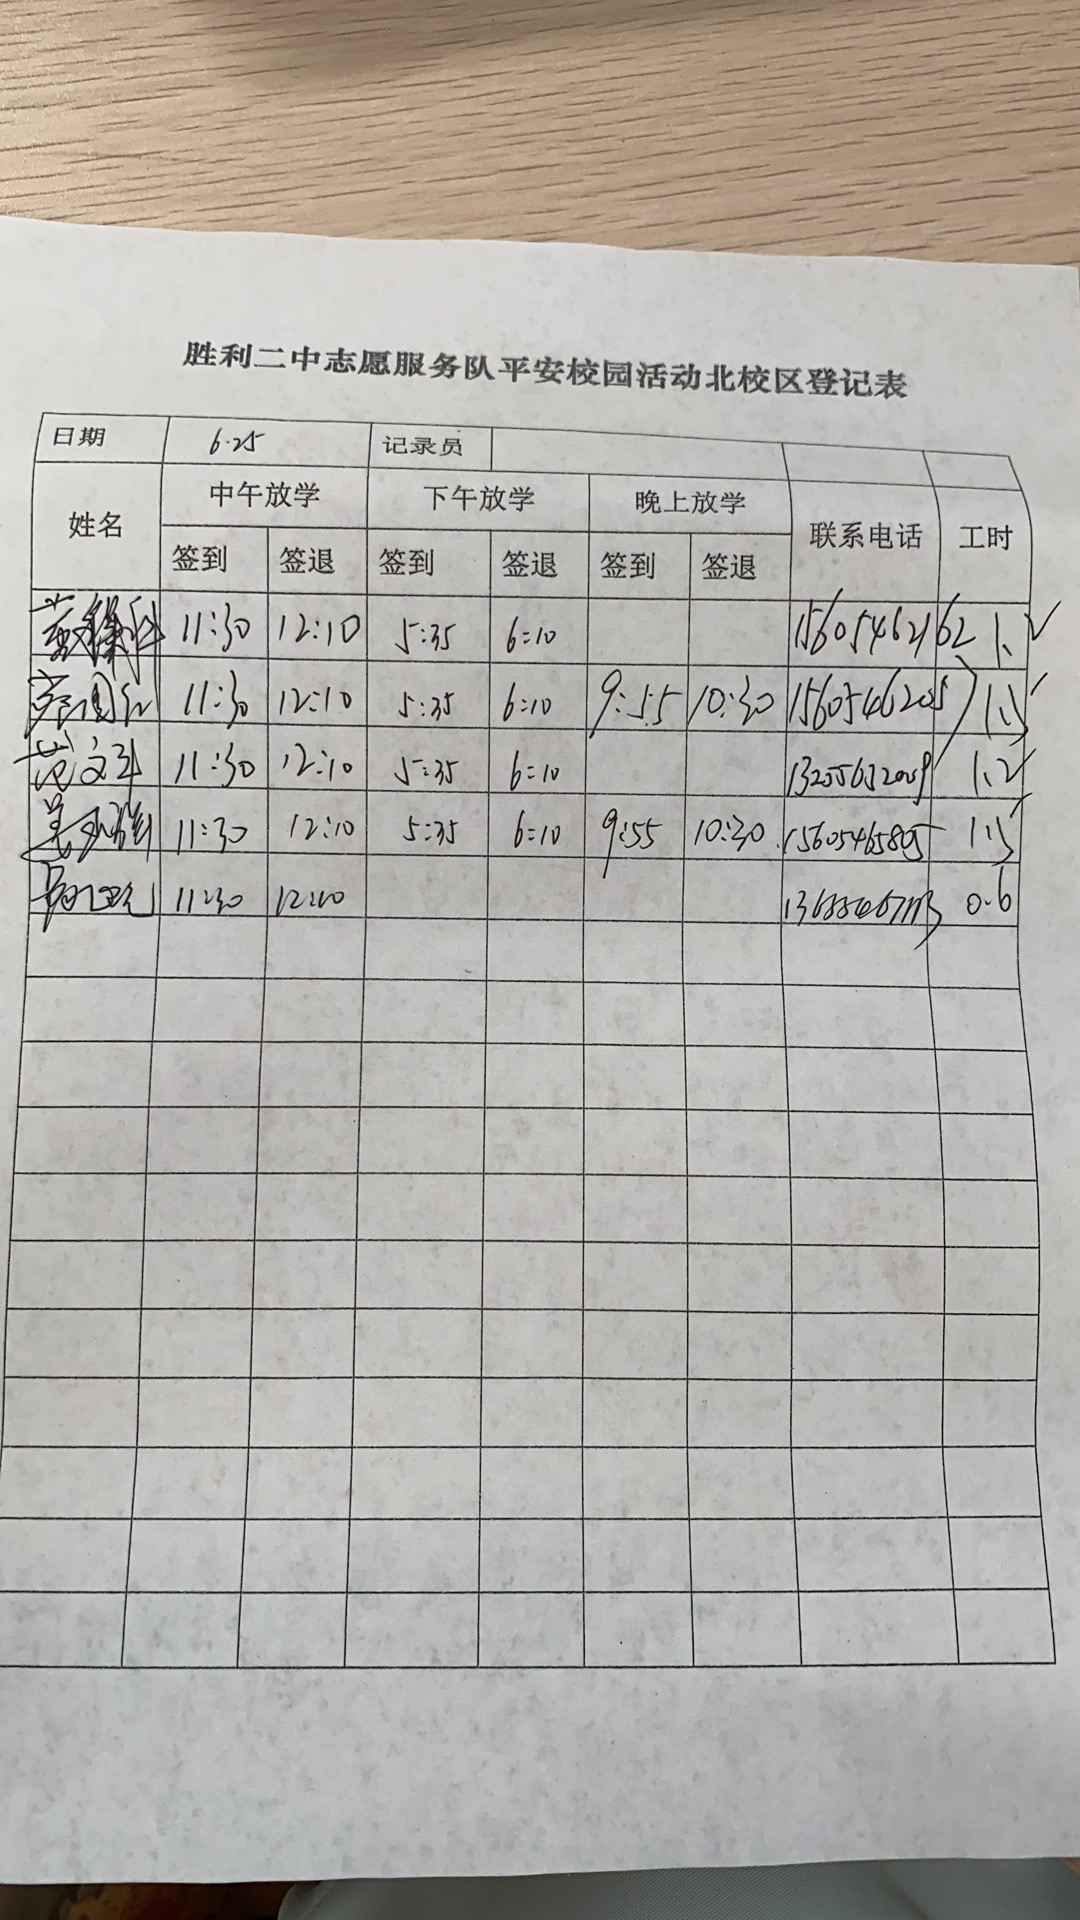 胜利二中志愿服务队平安校园活动北校区登记表
日期 6.25 记录员
姓名 中午放学 下午放学 晚上放学 联系电话 工时
签到 签退 签到 签退 签到 签退
11:30 12:10 5:35 6:10 15605462162 1.2
11:30 12:10 5:35 6:10 9:55 10:30 15605466205 1.5
范文军 11:30 12:10 5:35 6:10 1.2
11:30 12:10 5:35 6:10 9:55 10:30 1.5
11:30 12:10 0.6